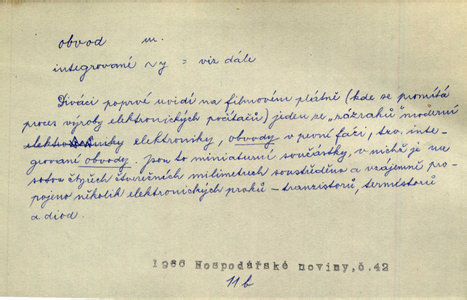 obvod m.
integrované ~y = viz dále
Diváci poprvé uvidí na filmovém plátně (kde se promítá
proces výroby elektronických počítačů) jeden ze "zázraků" moderní
elektroniky, obvody v první fázi, tzv. inte-
grované obvody. Jsou to miniaturní součástky, v nichž je na
čtyřech čtverečních milimetrech soustředěno a vzájemně pro-
pojeno několik elektronických prvků - tranzistorů, termistorů
a diod.
1966 Hospodářské noviny, č. 42
11b